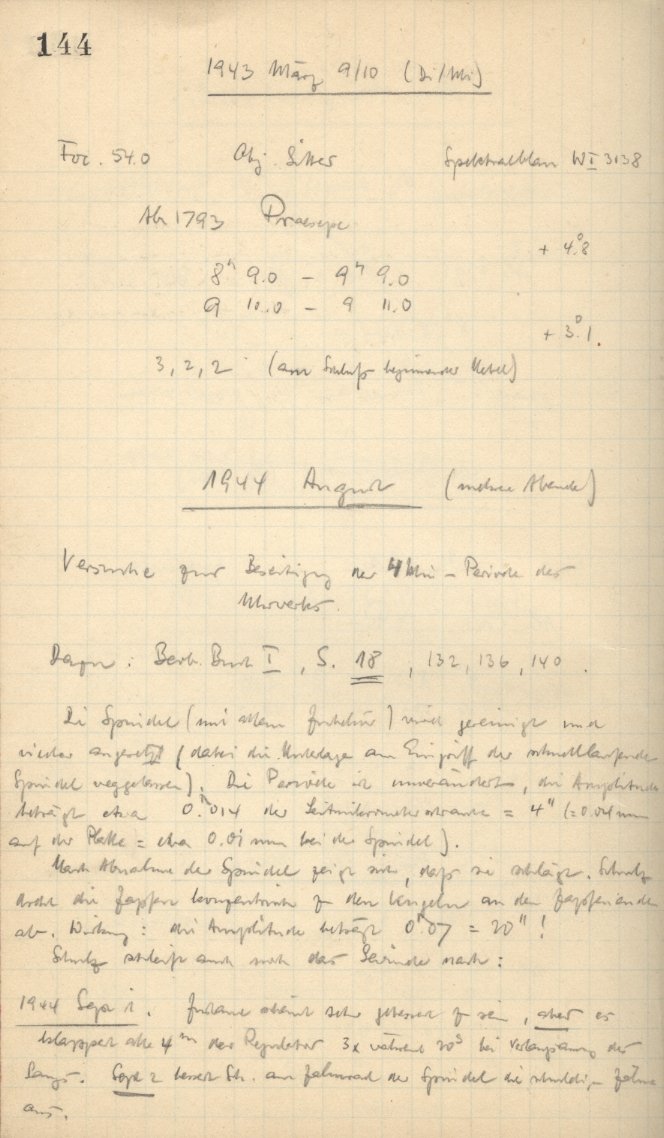 144
1943 März 9/10 (Di/Mi)
Foc. 54.0 Obj. Gitter Spektralblau WI 3138
Abr 1793 Praesepe
+ 4°.8
8h 9.0 – 9h 9.0
9 10.0 – 9 11.0
+ 3°.1.
3, 2, 2 (am Schluß beginnender Nebel)
1944 August (mehrere Abende)
Versuche zur Beseitigung der 4 Min – Periode des
Uhrwerks.
Dazu: Beob. Buch I, S. 18, 132, 136, 140.
Die Spindel (mit allem Zubehör) wird gereinigt und
wieder angesetzt (dabei die Unterlage am Eingriff der schnellaufenden
Spindel weggelassen). Die Periode ist unverändert, die Amplitude
beträgt etwa 0.014 der = 4" (=
auf der Platte = etwa 0.01 mm bei der Spindel).
Nach Abnahme der Spindel zeigt sich, daß sie schlägt. Schulz
dreht die Zapfen konzentrisch zu den Kugeln an den Zapfenenden
ab. Wirkung: die Amplitude beträgt 0.07 = 20"!
Schulz schleift auch noch das Gewinde nach:
1944 Sept 1. scheint sehr gebessert zu sein, aber es
klappert alle 4m der Regulator 3x während 20s bei Verlangsamung des
Gangs. Sept 2 bessert Sch. am Zahnrad der Spindel die schuldigen Zähne
aus.